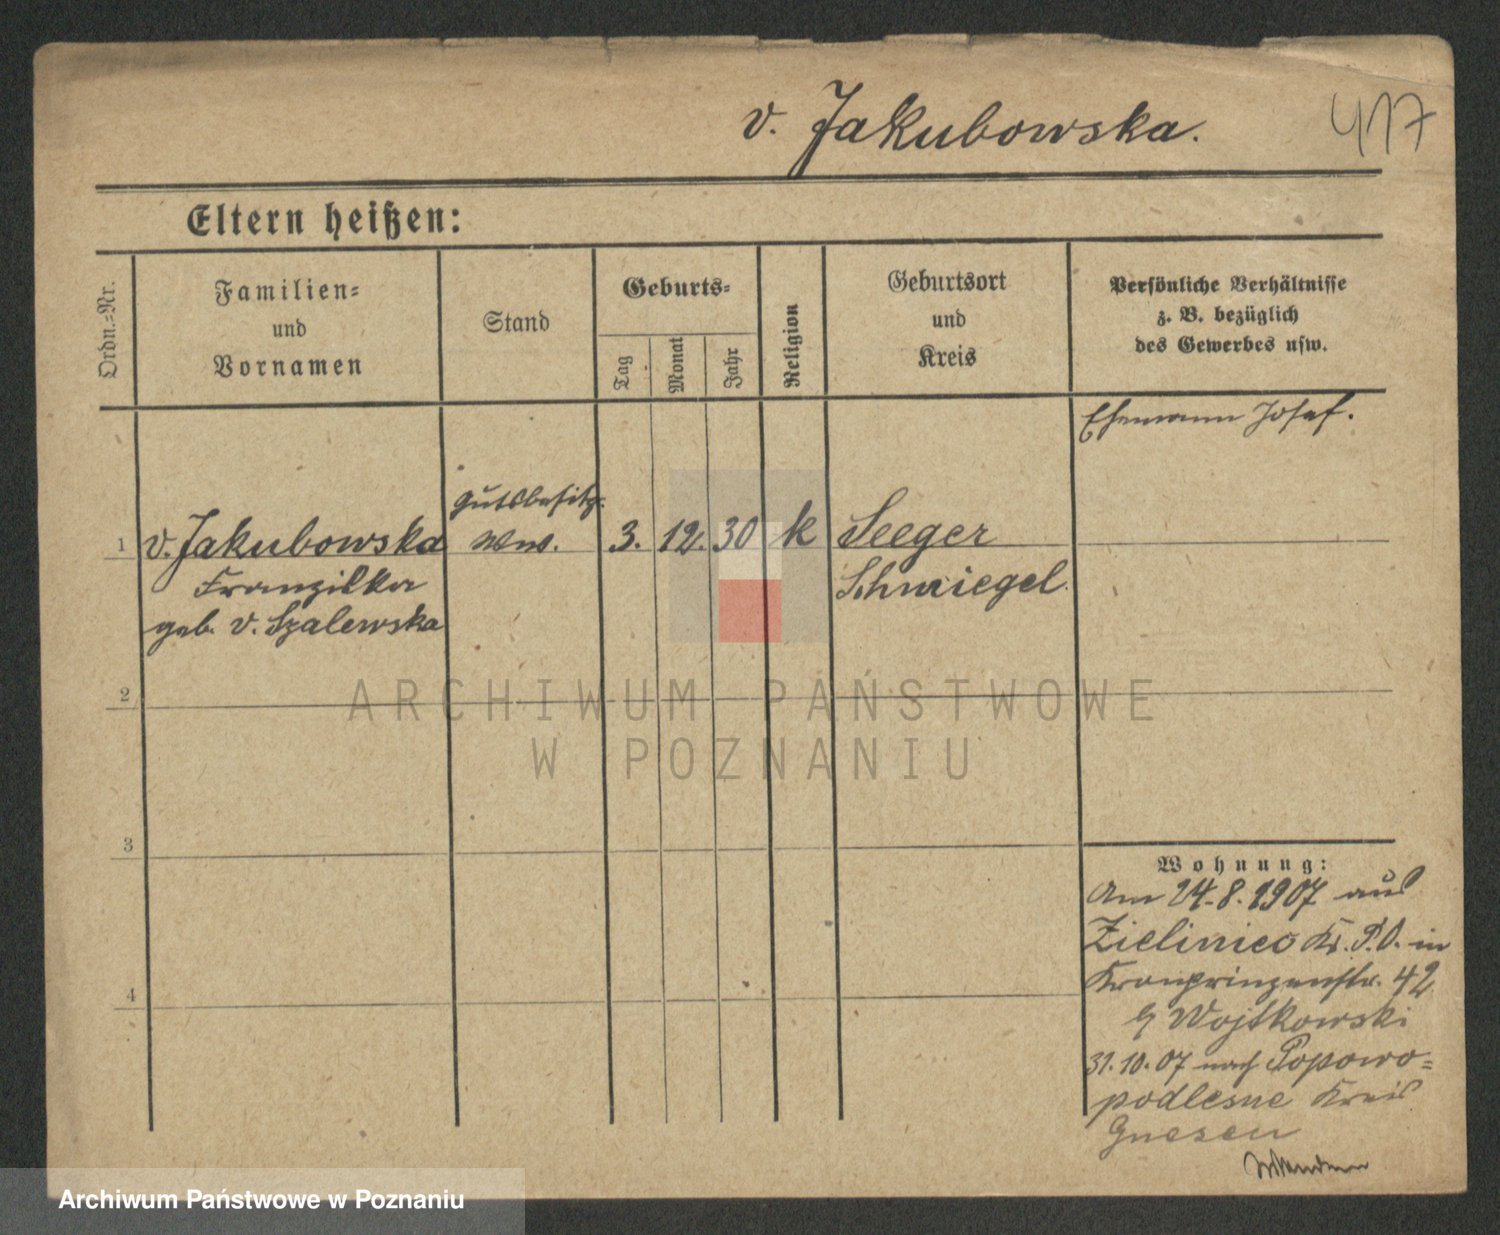 v. Jakubowska.
417
Eltern heißen:
Ordn.=Nr.
Familien=
und
Vornamen
Stand
Geburts=
Tag
Monat
Jahr
Religion
Geburtsort
und
Kreis
Persönliche Verhältnisse
z. B. bezüglich
des Gewerbes usw.
Ehemann Josef.
1
v. Jakubowska
Franziska
geb. v. Szalewska
Gutsbesitz.
Ww.
3.
12.
30
k
Seeger
Schmiegel.
2
3
4
ARCHIWUM PAŃSTWOWE
W POZNANIU
Wohnung:
Am 24.8.1907 aus
Zieliniec Kr. P.O. in
Kronprinzenstr. 42
Wojtkowski
31.10.07 nach Popowo=
podlesne Kreis
Gnesen
Archiwum Państwowe w Poznaniu